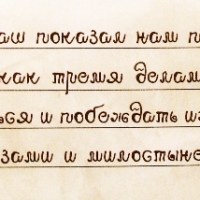 аш показал нам п
как тремя делам
ься и побеждать и
зами и милостыне